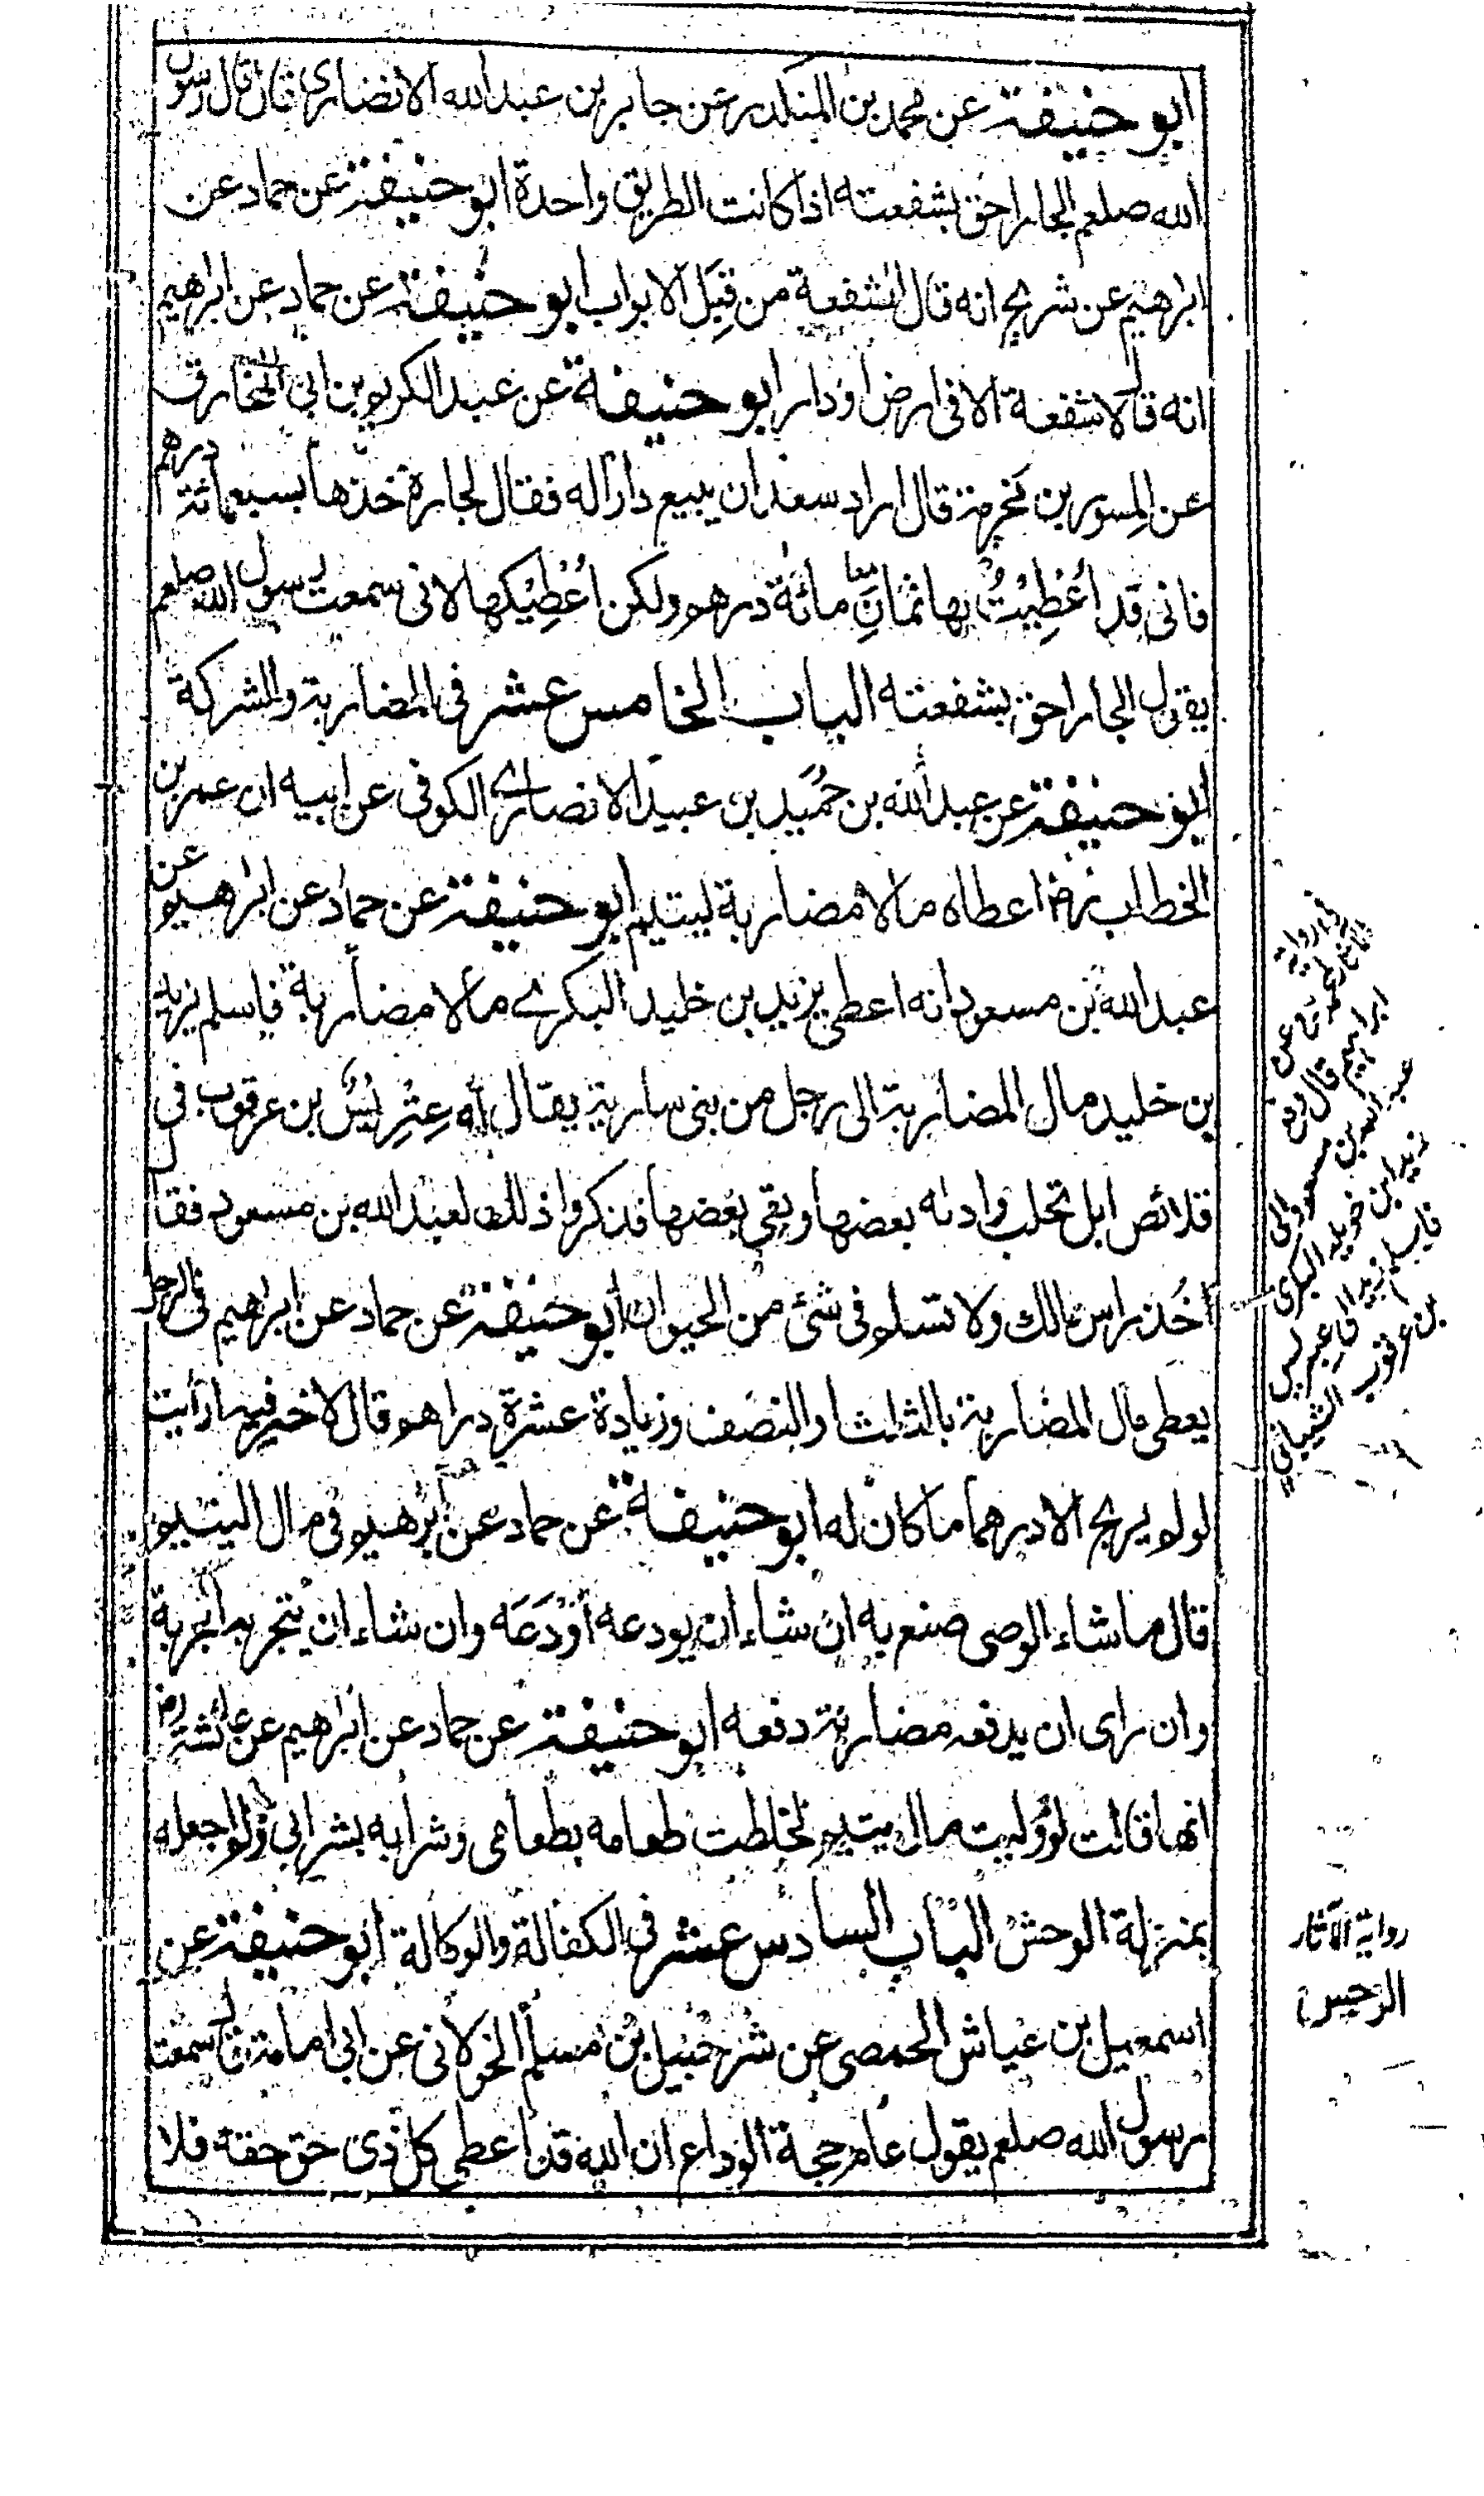 ابو حنيفة عن محمد بن المنكدر عن جابر بن عبد الله الانصاري قال قال رسول
الله صلعم الجار احق بشفعته اذا كانت الطريق واحدة ابو حنيفة عن حماد عن
ابرهيم عن شريح انه قال الشفعة من قِبَل الابواب ابو حنيفة عن حماد عن ابرهيم
انه قال لا شفعة الا فى ارض او دار ابو حنيفة عن عبد الكريم بن ابى المخارق
عن المِسور بن مَخرمة قال اراد سعد ان يبيع دارا له فقال لجاره خذها بسبعمائة درهم
فانى قد اُعْطِيْتُ بها ثمانَ مائة درهم ولكن اُعْطِيْكها لانى سمعت رسول الله صلعم
يقول الجار احق بشفعته الباب الخامس عشر فى المضاربة والشركة
ابو حنيفة عن عبد الله بن حُمَيد بن عبيد الانصارى الكوفى عن ابيه ان عمر بن
الخطاب رض اعطاه مالا مضاربة ليتيم ابو حنيفة عن حماد عن ابرهيم عن
عبد الله بن مسعود انه اعطى يزيد بن خليد البكرى مالا مضاربة فاسلم يزيد
بن خليد مال المضاربة الى رجل من بنى سارية يقال له عِتْرِيْسُ بن عرقوب فى
قلائص ابل تحلب واداه بعضها وبقى بعضها فذكروا ذلك لعبد الله بن مسعود فقال
اخُذ راس مالك ولا تسلم فى شئ من الحيوان ابو حنيفة عن حماد عن ابراهيم فى الرجل
يعطى مال المضاربة بالثلث والنصف وزيادة عشرة دراهم قال لا خير فيه ارأيت
لو لم يربح الا درهما ما كان له ابو حنيفة عن حماد عن ابرهيم فى مال اليتيم
قال ما شاء الوصى صنع به ان شاء ان يودعه اَوْدَعَه وان شاء ان يتجر به اتجر به
وان راى ان يدفعه مضاربة دفعه ابو حنيفة عن حماد عن ابرهيم عن عائشة رض
انها قالت لو وُليت مال يتيم لخلطت طعامه بطعامى وشرابه بشرابى ولم اجعله
بمنزلة الوحش الباب السادس عشر فى الكفالة والوكالة ابو حنيفة عن
اسمعيل بن عياش الحمصى عن شرحبيل بن مسلم الخولانى عن ابى امامة قال سمعت
رسول الله صلعم يقول عام حجة الوداع ان الله قد اعطى كل ذى حق حقه فلا
ابراهيم قال دفع
عبد الله بن مسعود الى
زيد بن خويلد البكرى
بن عرقوب الشيبانى
رواية الآثار
الرجس